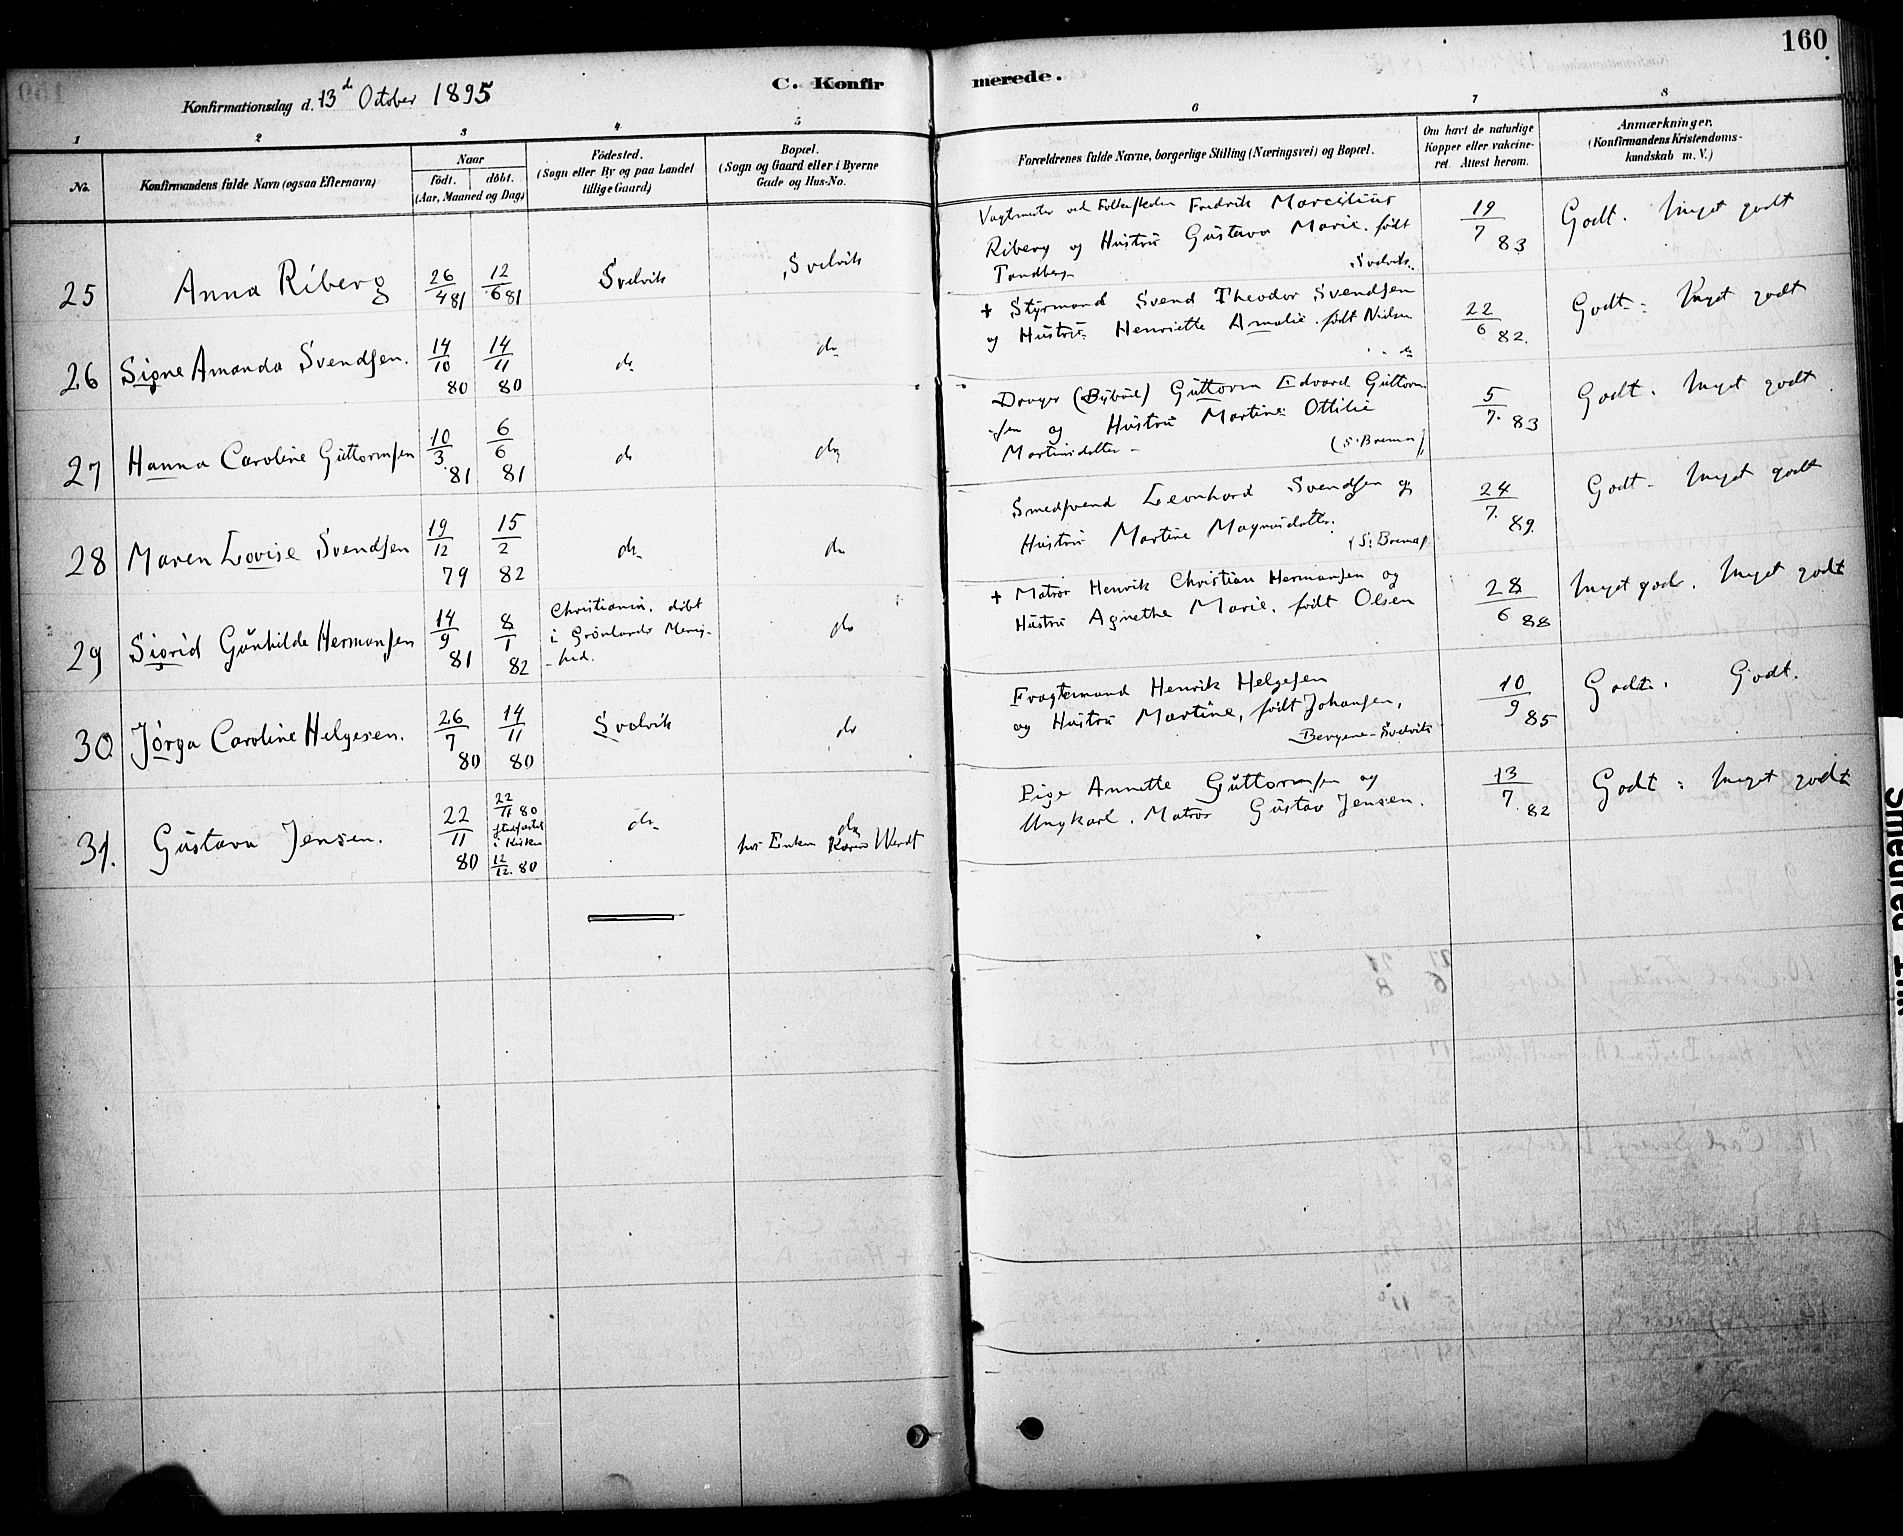 160
Konfirmationsdag d. 13de October 1895
C. Konfirmerede.
1 2 3 4 5 6 7 8
No. Konfirmandens fulde Navn (ogsaa Efternavn)
Naar født. døbt. (Aar, Maaned og Dag)
Fødested. (Sogn eller By og paa Landet tillige Gaard)
Bopæl. (Sogn og Gaard eller i Byerne Gade og Hus-No.
Forældrenes fulde Navne, borgerlige Stilling (Næringsvei) og Bopæl.
Om havt de naturlige Kopper eller vakcineret. Attest herom.
Anmærkninger. (Konfirmandens Kristendomskundskab m. V.)
25 Anna Riberg 26/4 81 12/6 81 Svelvik Svelvik
Fredrik Marcelius
Riberg og Hustru Gustava Marie. født
Tandberg Svelvik.
19/7 83 Godt. Meget godt
26 Signe Amanda Svendsen. 14/10 80 14/11 80 do do
+ Styrmand Svend Theodor Svendsen
og Hustru Henriette Amalie. født Nielsen
do
22/6 82. Godt. Meget godt
27 Hanna Caroline Guttormsen 10/3 81 6/6 81 do do
Guttorm Edvard Guttorm-
sen og Hustru Martine Ottilie
Martinsdatter
5/7. 83 Godt. Meget godt
28 Maren Lovise Svendsen 19/12 79 15/2 82 do do
Smedsvend Leonhard Svendsen og
Hustru Martine Magnusdatter.
24/7. 89. Godt. Meget godt
29 Sigrid Gunhilde Hermansen 14/9 81 8/1 82 Christiania. døbt
i Grønlands Menig-
-hed. do
+ Matros Henrik Christian Hermansen og
Hustru Agnethe Marie. født Olsen
28/6 88 Meget god. Meget godt
30 Jørga Caroline Helgesen. 26/7 80 14/11 80 Svelvik do
Henrik Helgesen
og Hustru Martine, født Johansen,
Bergene-Svelvik
10/9 85 Godt. Godt.
31. Gustava Jensen. 22/11 80 22/11 80
stadfæstet
i Kirken
12/12. 80 do do
hos Enken Karen Werdt
Pige Annette Guttormsen og
Ungkarl. Matros Gustav Jensen.
13/7. 82 Godt. Meget godt